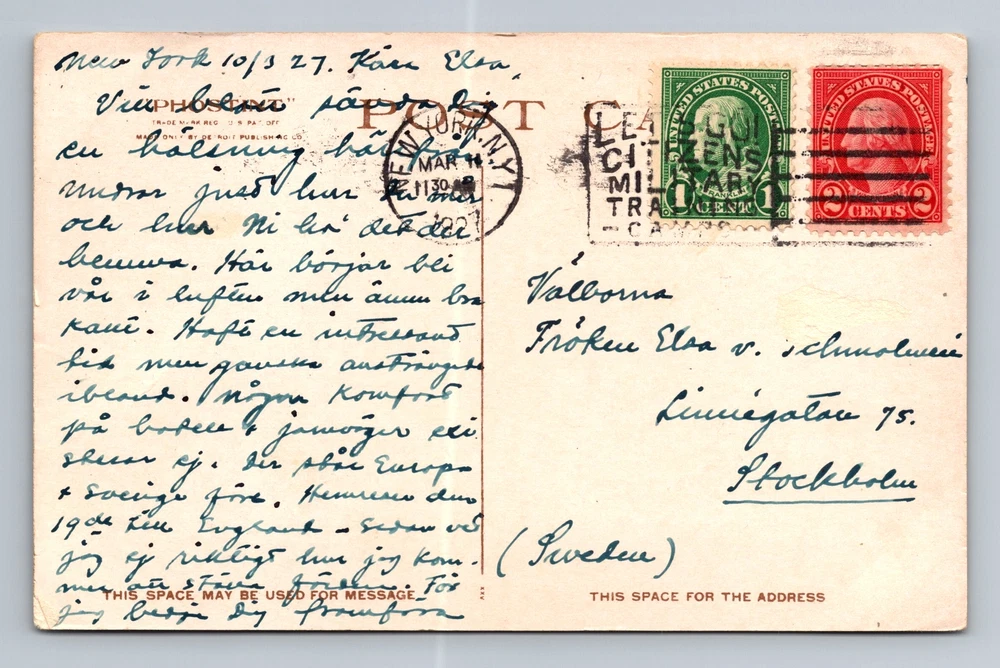 New York 10/3 27. Kära Elsa,
Vill blott sända Dig
en hälsning härifrån
undrar just hur Du mår
och hur Ni ha' det där
hemma. Här börjar bli
vår i luften men ännu bra
kallt. Haft en intressant
tid men ganska ansträngande
ibland. Någon Komfort
på hotell & järnvägar exi
sterar ej. Der står Europa
& Sverige före. Hemreser den
19de till England - sedan vet
jag ej riktigt hur jag kom-
mer att ställa färden. Får
jag bedja Dig framföra
"PHOSTINT"
TRADE MARK REG. U.S. PAT. OFF.
MADE ONLY BY DETROIT PUBLISHING CO.
POST CA
NEW YORK, N.Y.
MAR 11
1130 AM
1927
LET
CITIZENS
MILITARY
TRAINING
CAMPS
UNITED STATES POSTAGE
FRANKLIN
1 CENT 1
UNITED STATES POSTAGE
2 CENTS 2
Välborna
Fröken Elsa v.
Linnégatan 75.
Stockholm
(Sweden)
THIS SPACE MAY BE USED FOR MESSAGE
THIS SPACE FOR THE ADDRESS